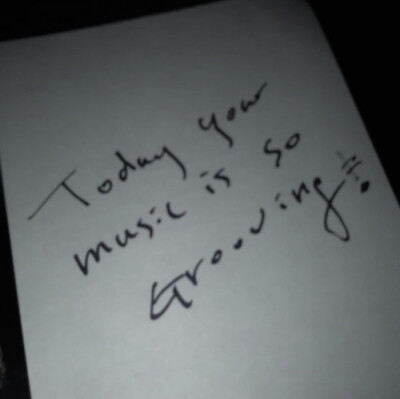 Today your
music is so
Grooving!!